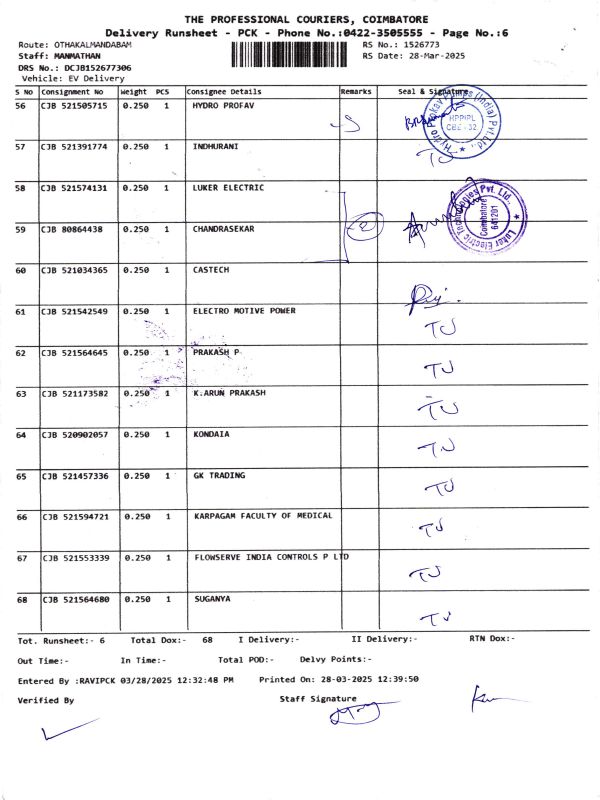 THE PROFESSIONAL COURIERS, COIMBATORE
Delivery Runsheet - PCK - Phone No.:0422-3505555 - Page No.:6
Route: OTHAKALMANDABAM RS No.: 1526773
Staff: MANMATHAN RS Date: 28-Mar-2025
DRS No.: DCJB152677306
Vehicle: EV Delivery
S NO Consignment No Weight PCS Consignee Details Remarks Seal & Signature
56 CJB 521505715 0.250 1 HYDRO PROFAV
HPPIPL
57 CJB 521391774 0.250 1 INDHURANI TJ
58 CJB 521574131 0.250 1 LUKER ELECTRIC
Luker Electric Technologies Pvt. Ltd.,
Coimbatore
641201
59 CJB 80864438 0.250 1 CHANDRASEKAR 2
60 CJB 521034365 0.250 1 CASTECH
61 CJB 521542549 0.250 1 ELECTRO MOTIVE POWER TJ
62 CJB 521564645 0.250 1 PRAKASH P TJ
63 CJB 521173582 0.250 1 K.ARUN PRAKASH TJ
64 CJB 520902057 0.250 1 KONDAIA TJ
65 CJB 521457336 0.250 1 GK TRADING TJ
66 CJB 521594721 0.250 1 KARPAGAM FACULTY OF MEDICAL TJ
67 CJB 521553339 0.250 1 FLOWSERVE INDIA CONTROLS P LTD TJ
68 CJB 521564680 0.250 1 SUGANYA TJ
Tot. Runsheet:- 6 Total Dox:- 68 I Delivery:- II Delivery:- RTN Dox:-
Out Time:- In Time:- Total POD:- Delvy Points:-
Entered By :RAVIPCK 03/28/2025 12:32:48 PM Printed On: 28-03-2025 12:39:50
Verified By Staff Signature